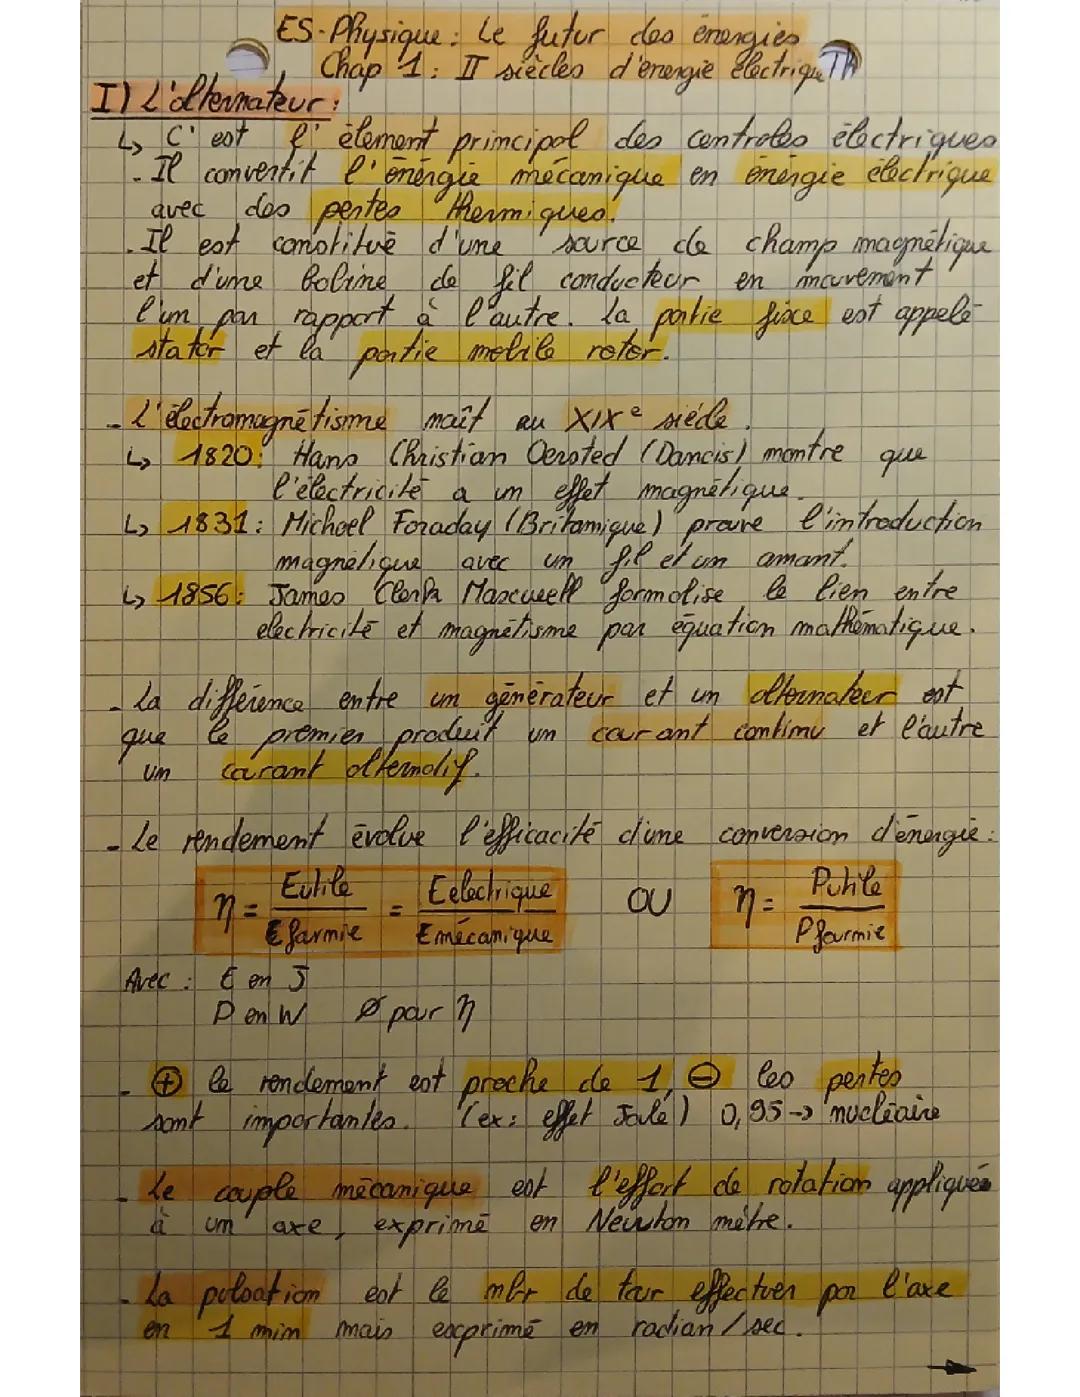 ES-Physique : Le futur des énergies
Chap 1 : II siècles d'énergie électrique Th
I) L'alternateur :
↳ C'est l'élément principal des centrales électriques
- Il convertit l'énergie mécanique en énergie électrique
avec des pertes thermiques.
- Il est constitué d'une source de champ magnétique
et d'une bobine de fil conducteur en mouvement
l'un par rapport à l'autre. La partie fixe est appelé
stator et la partie mobile rotor.
- L'électromagnétisme naît au XIXe siècle.
↳ 1820 : Hans Christian Oersted (Danois) montre que
l'électricité a un effet magnétique.
↳ 1831 : Michael Faraday (Britannique) prouve l'introduction
magnétique avec un fil et un amant.
↳ 1856 : James Clerk Maxwell formalise le lien entre
electricité et magnétisme par équation mathématique.
- La différence entre un générateur et un alternateur est
que le premier produit un courant continu et l'autre
un courant alternatif.
- Le rendement évolue l'efficacité d'une conversion d'énergie :
η = Eutile / Efournie = Eélectrique / Emécanique OU η = Putile / Pfournie
Avec : E en J
P en W Ø pour η
- ⊕ le rendement est proche de 1, ⊖ les pertes
sont importantes. (ex : effet Joule) 0,95 → nucléaire
- Le couple mécanique est l'effort de rotation appliqués
à un axe, exprimé en Newton mètre.
- La pulsation est le nbr de tour effectuer par l'axe
en 1 min mais exprimé en radian / sec.
→